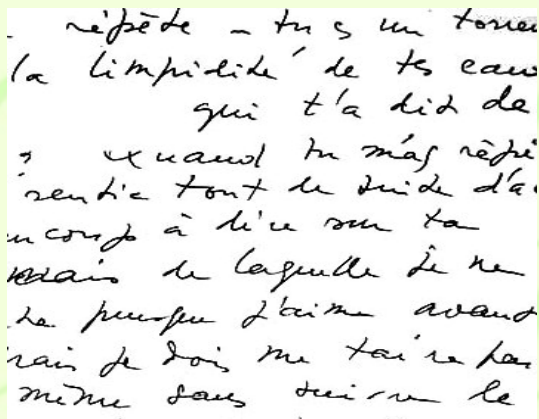 répète - tu es un torren
la limpidité de tes eaux
qui t'a dit de
quand tu m'as répé
sentie tout de suite d'ac
ucoup à dire sur ta
mais de laquelle je ne
puisque j'aime avant
rais je dois me taire par
même sans suivre le